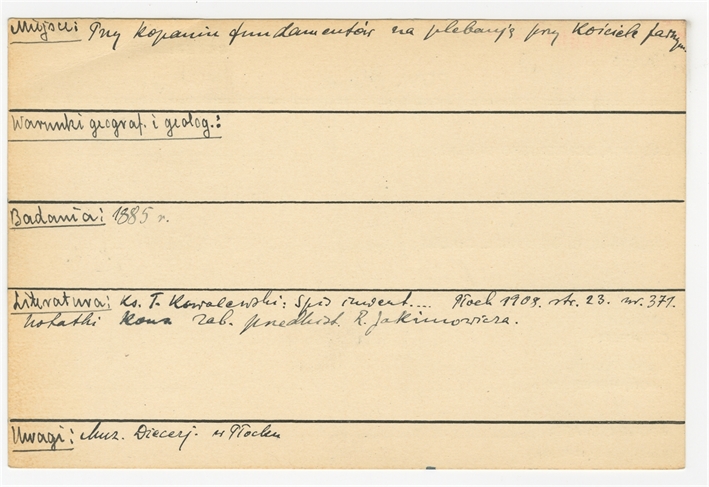 Miejsce: Przy kopaniu fundamentów na plebanję przy Kościele farnym.
Warunki geograf. i geolog.:
Badania: 1885 r.
Literatura: Ks. T. Kowalewski: Spis inwent.... Płock 1909. str. 23. nr. 371.
Notatki Kons. zab. predhist. R. Jakimowicza.
Uwagi: Muz. Diecezj. w Płocku